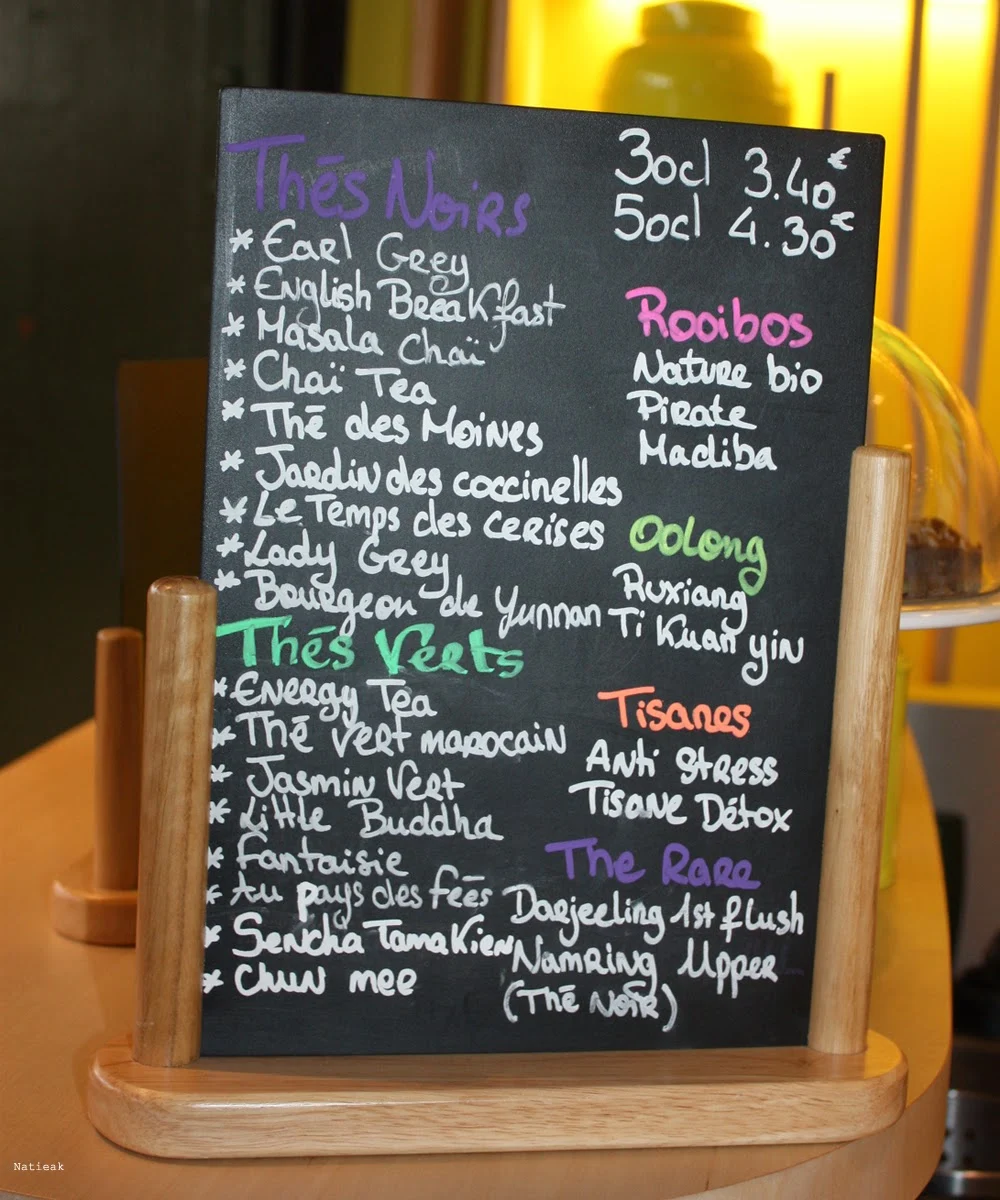 Thēs Noirs
* Earl Grey
* English Breakfast
* Masala Chaï
* Chaï Tea
* Thē des Moines
* Jardin des coccinelles
* Le Temps des cerises
* Lady Grey
* Bourgeon de Yunnan
Thēs Verts
* Energy Tea
* Thē vert marocain
* Jasmin Vert
* Little Buddha
* Fantaisie
* Au pays des fēēs
* Sencha Tamakien
* Chun mee
30cl 3.40€
50cl 4.30€
Rooibos
Nature bio
Pirate
Madiba
Oolong
Ruxiang
Ti Kuan yin
Tisanes
Anti Stress
Tisane Détox
The Rare
Darjeeling 1st flush
Namring Upper
(Thē Noir)
Natieak